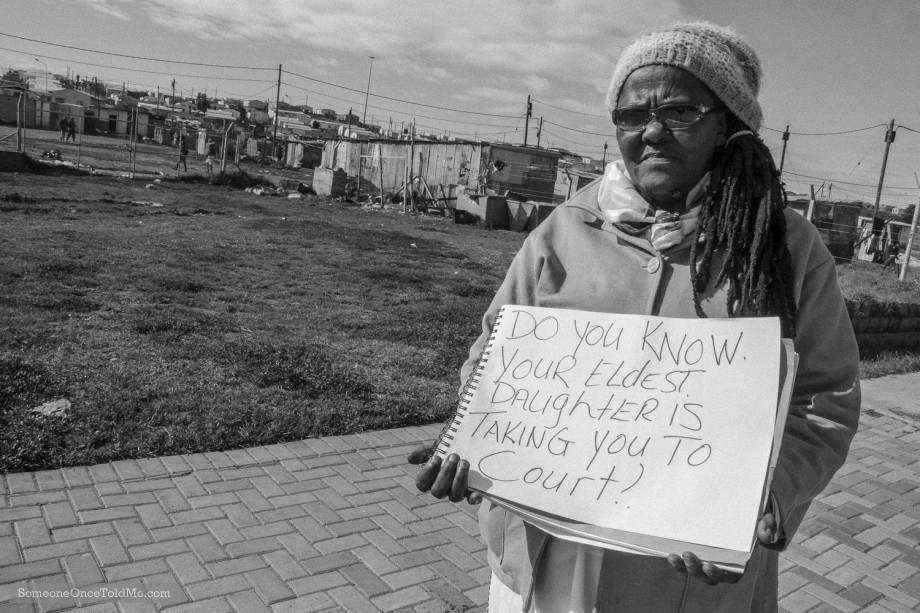 DO YOU KNOW.
YOUR ELDEST.
DAUGHTER IS
TAKING YOU TO
COURT?
SomeoneOnceToldMe.com